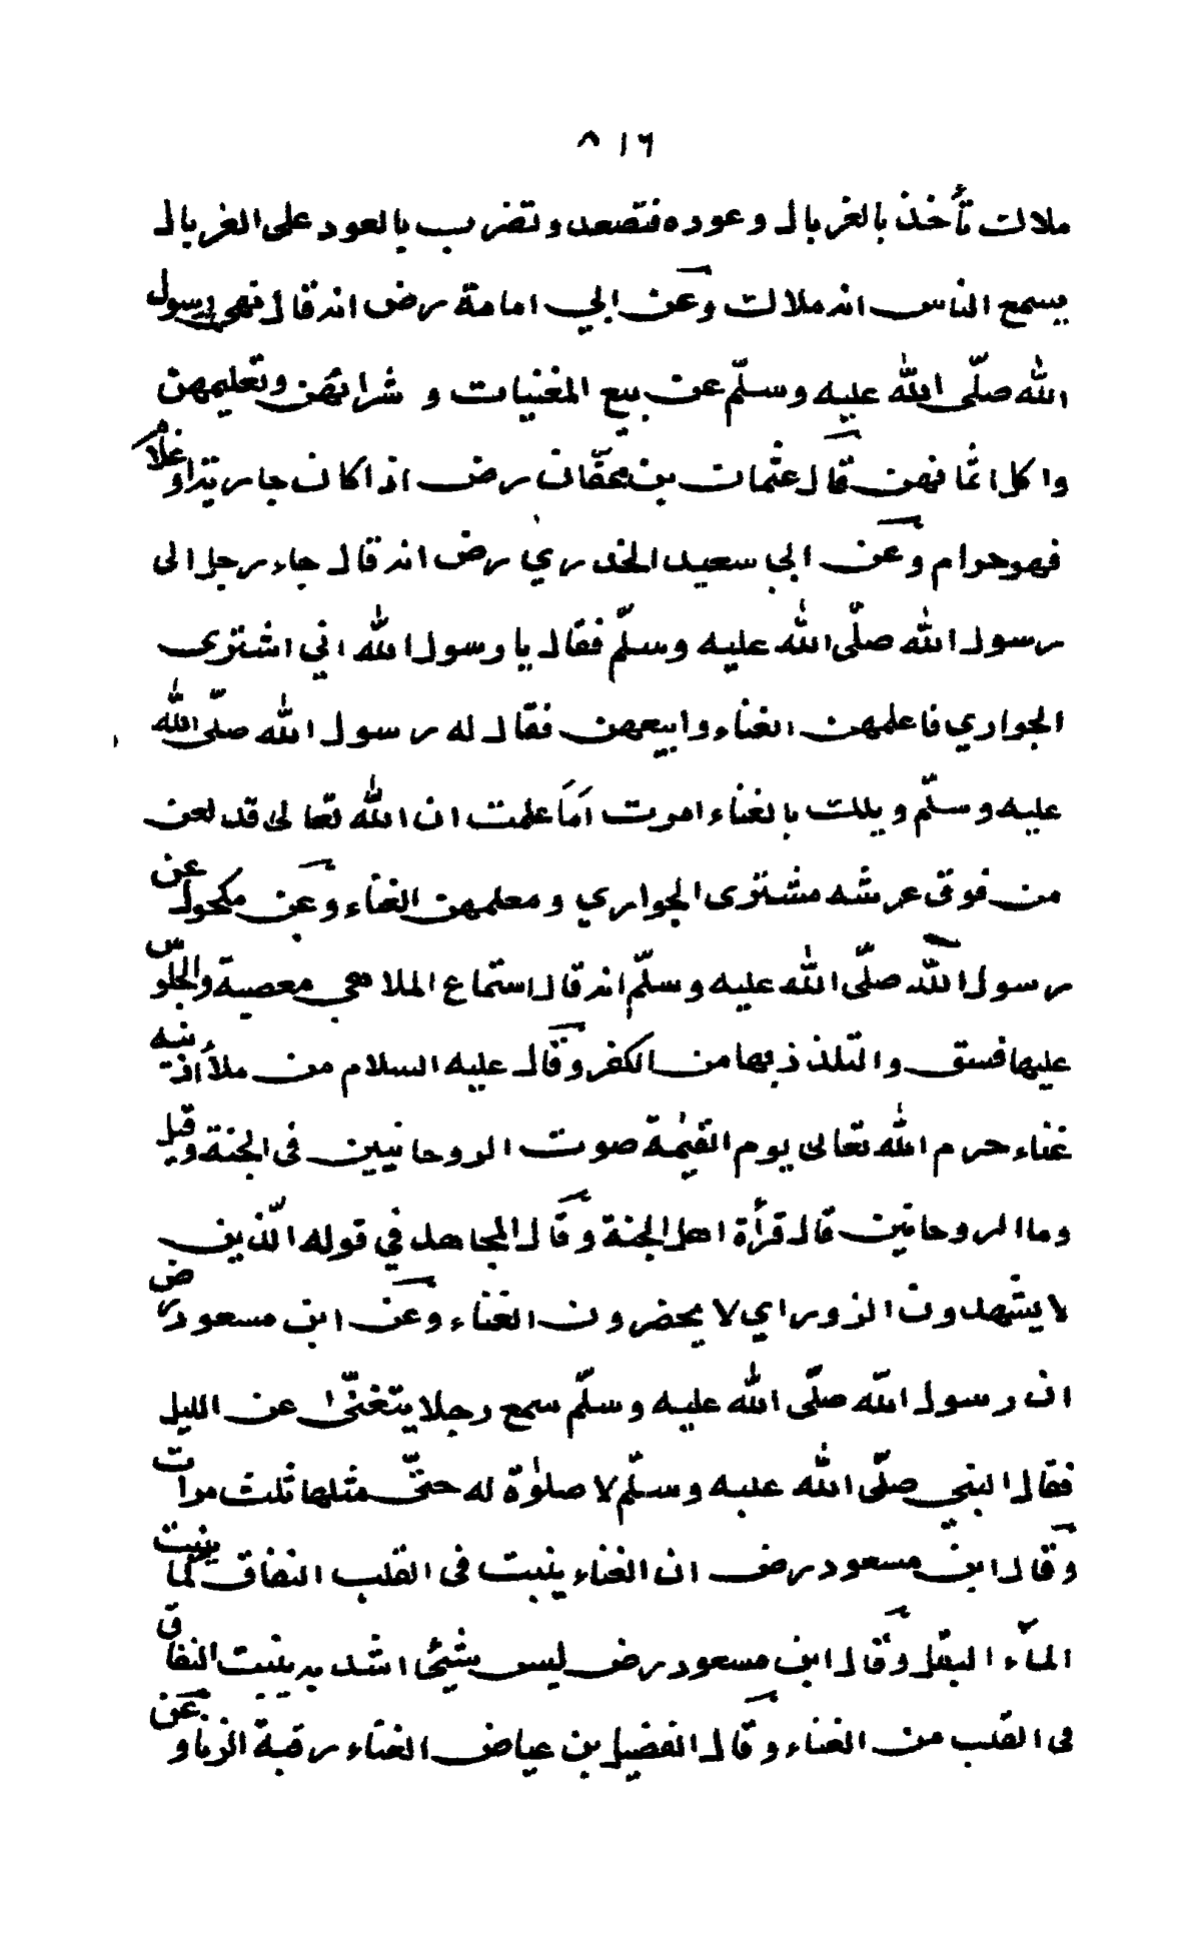 ٨١٦
ملالت تأخذ بالغربال وعوده فتصعد وتضرب بالعود على الغربال
يسمع الناس انه ملالت وعن ابي امامة رض انه قال نهى رسول
الله صلّى الله عليه وسلّم عن بيع المغنيات و شرائهن وتعليمهن
واكل اثمانهن قال عثمان بن عفّان رض اذا كان جاريته او غلامه
فهو حرام وعن ابي سعيد الخدري رض انه قال جاء رجل الى
رسول الله صلّى الله عليه وسلّم فقال يا رسول الله اني اشترى
الجواري فاعلمهن الغناء وابيعهن فقال له رسول الله صلّى الله
عليه وسلّم ويلك بالغناء امرت أمَا علمت ان الله تعالى قد لعن
من فوق عرشه مشترى الجواري ومعلمهن الغناء وعن مكحول عن
رسول الله صلّى الله عليه وسلّم انه قال استماع الملاهي معصية والجلوس
عليها فسق والتلذذ بها من الكفر وقال عليه السلام من ملأ اذنيه
غناء حرم الله تعالى يوم القيٰمة صوت الروحانيين فى الجنة وقيل
وما الروحانين قال قرأة اهل الجنة وقال المجاهد في قوله الّذين
لا يشهدون الزور اي لا يحضرون الغناء وعن ابن مسعود رض
ان رسول الله صلّى الله عليه وسلّم سمع رجلا يتغنّى عن الليل
فقال النبي صلّى الله عليه وسلّم لا صلوٰة له حتّى مثلها ثلث مرات
وقال ابن مسعود رض ان الغناء ينبت فى القلب النفاق كما ينبت
الماء البقل وقال ابن مسعود رض ليس شيئى اشد به ينبت النفاق
فى القلب من الغناء وقال الفضيل بن عياض الغناء رقية الزنا وعن